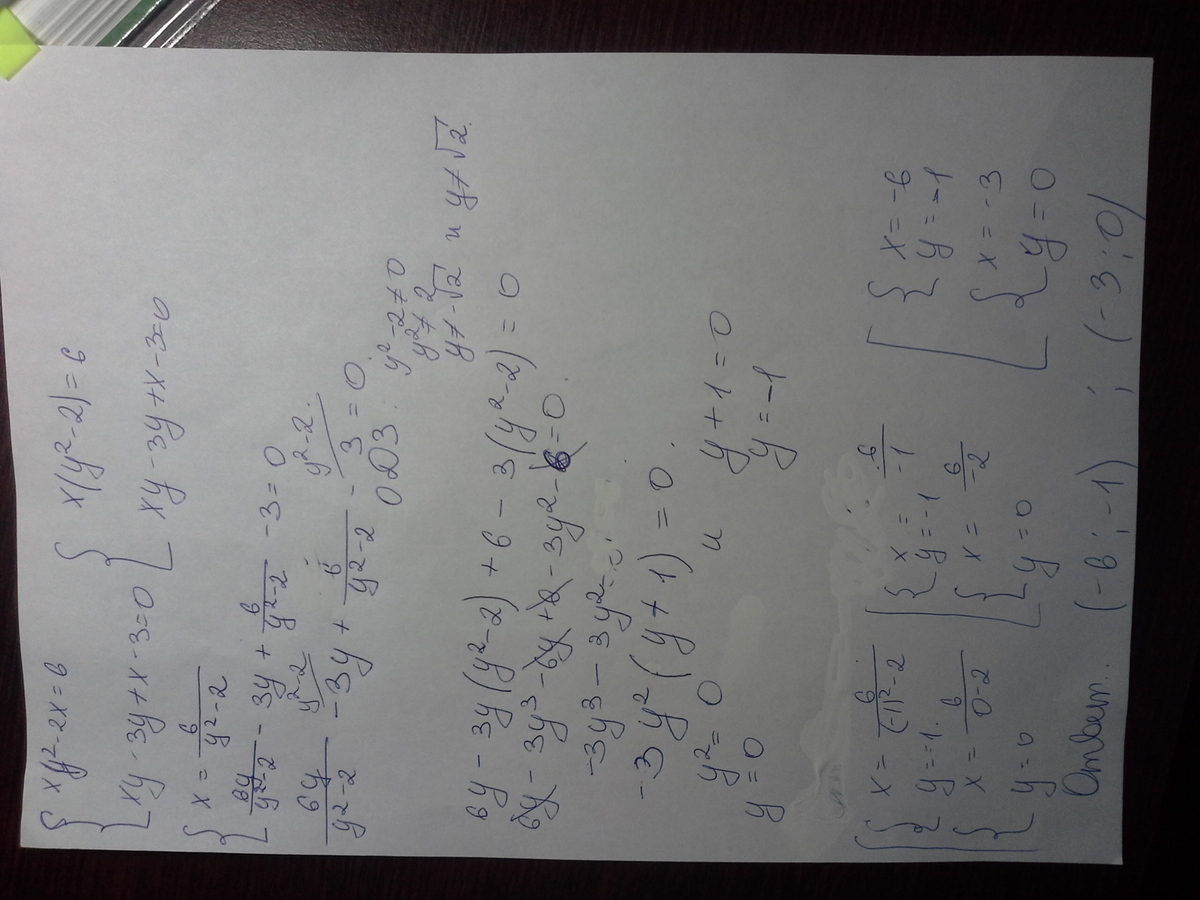 { xy²-2x=6 { x(y²-2)=6
xy-3y+x-3=0 xy-3y+x-3=0
{ x = 6/(y²-2)
6y/(y²-2) - 3y + 6/(y²-2) - 3=0
6y/(y²-2) - 3y /y²-2 + 6/(y²-2) - 3 /y²-2 = 0.
ОДЗ. y²-2≠0
y²≠2
y≠-√2 и y≠√2.
6y - 3y(y²-2)+6-3(y²-2)=0
6y-3y³-6y+6-3y²-6=0.
-3y³-3y²=0
-3y²(y+1)=0.
y²=0 и y+1=0
y=0 y=-1
[ { x = 6/((-1)²-2) [ { x = 6/-1 [ { x=-6
y=-1 y=-1 y=-1
{ x = 6/(0-2) { x = 6/-2 { x=-3
y=0 y=0 y=0
Ответ: (-6;-1) ; (-3;0)